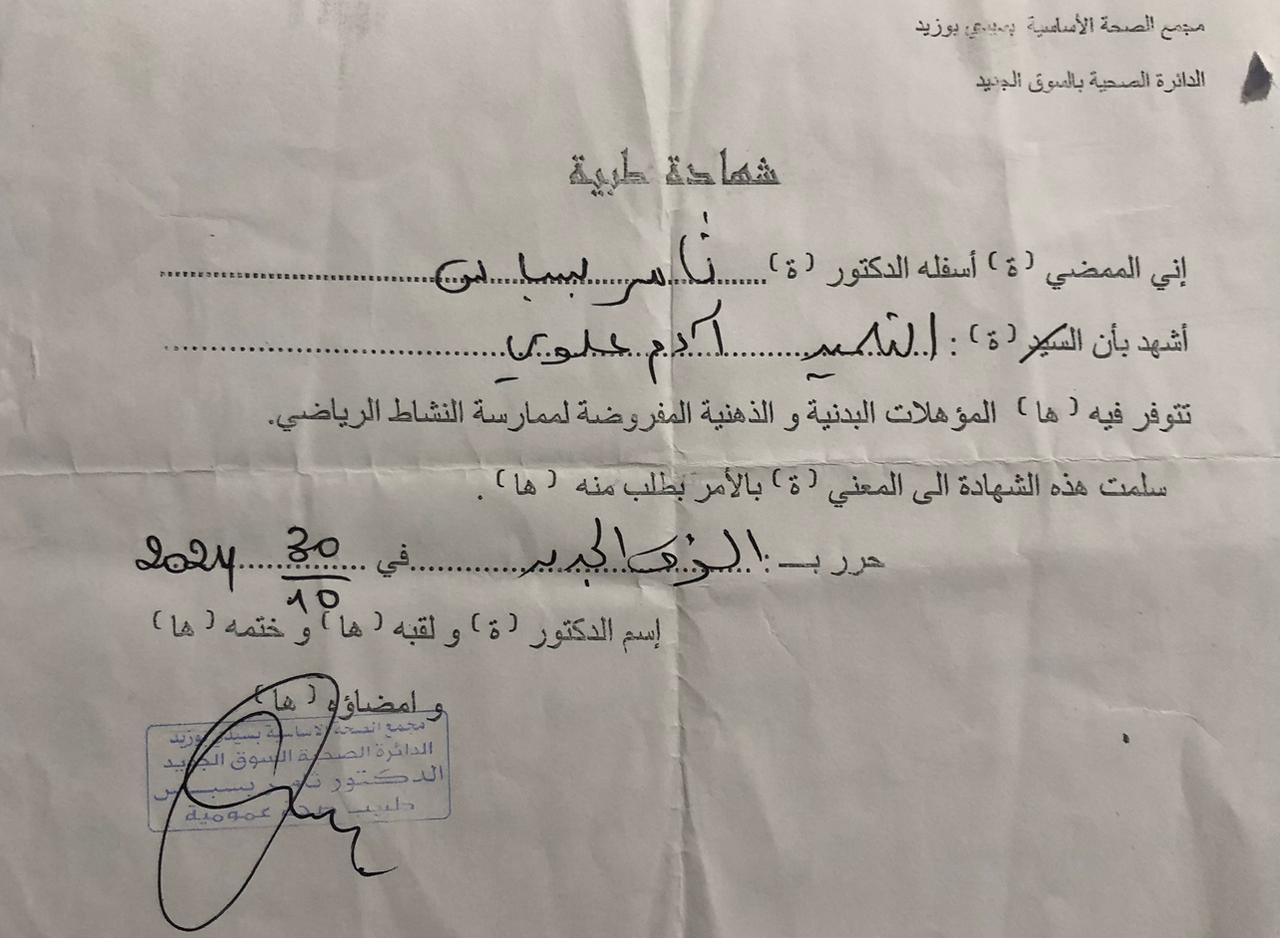 مجمع الصحة الأساسية بسيدي بوزيد
الدائرة الصحية بالسوق الجديد
شهادة طبية
إني الممضي (ة) أسفله الدكتور (ة)
أشهد بأن السيد (ة) : التلميذ آدم علوي
تتوفر فيه (ها) المؤهلات البدنية و الذهنية المفروضة لممارسة النشاط الرياضي.
سلمت هذه الشهادة الى المعني (ة) بالأمر بطلب منه (ها) .
حرر بـ : السوق الجديد في 30/10 2024
إسم الدكتور (ة) و لقبه (ها) و ختمه (ها)
و امضاؤه (ها)
مجمع الصحة الاساسية بسيدي بوزيد
الدائرة الصحية السوق الجديد
الدكتور
طبيب صحة عمومية